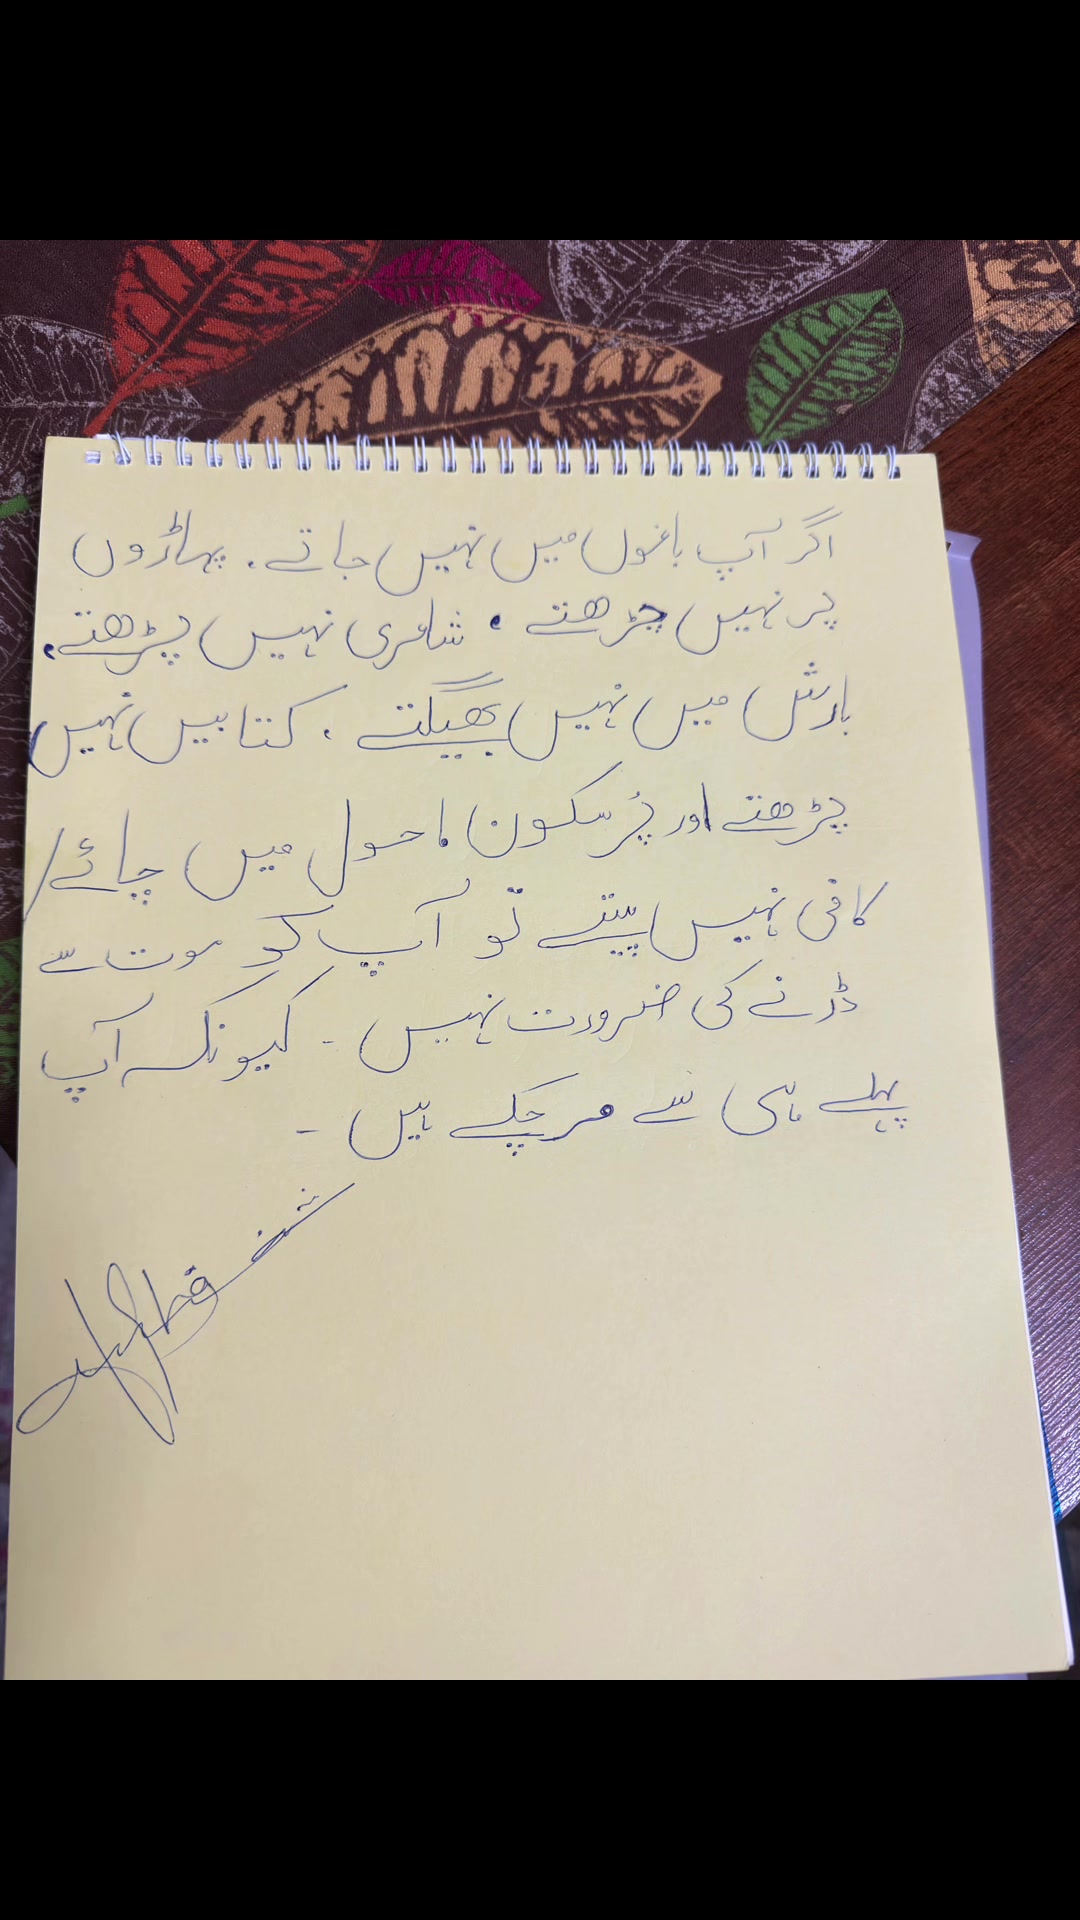 اگر آپ باغوں میں نہیں جاتے، پہاڑوں
پر نہیں چڑھتے، شاعری نہیں پڑھتے،
بارش میں نہیں بھیگتے، کتابیں نہیں
پڑھتے اور پُرسکون ماحول میں چائے/
کافی نہیں پیتے تو آپ کو موت سے
ڈرنے کی ضرورت نہیں ۔ کیونکہ آپ
پہلے ہی سے مر چکے ہیں ۔